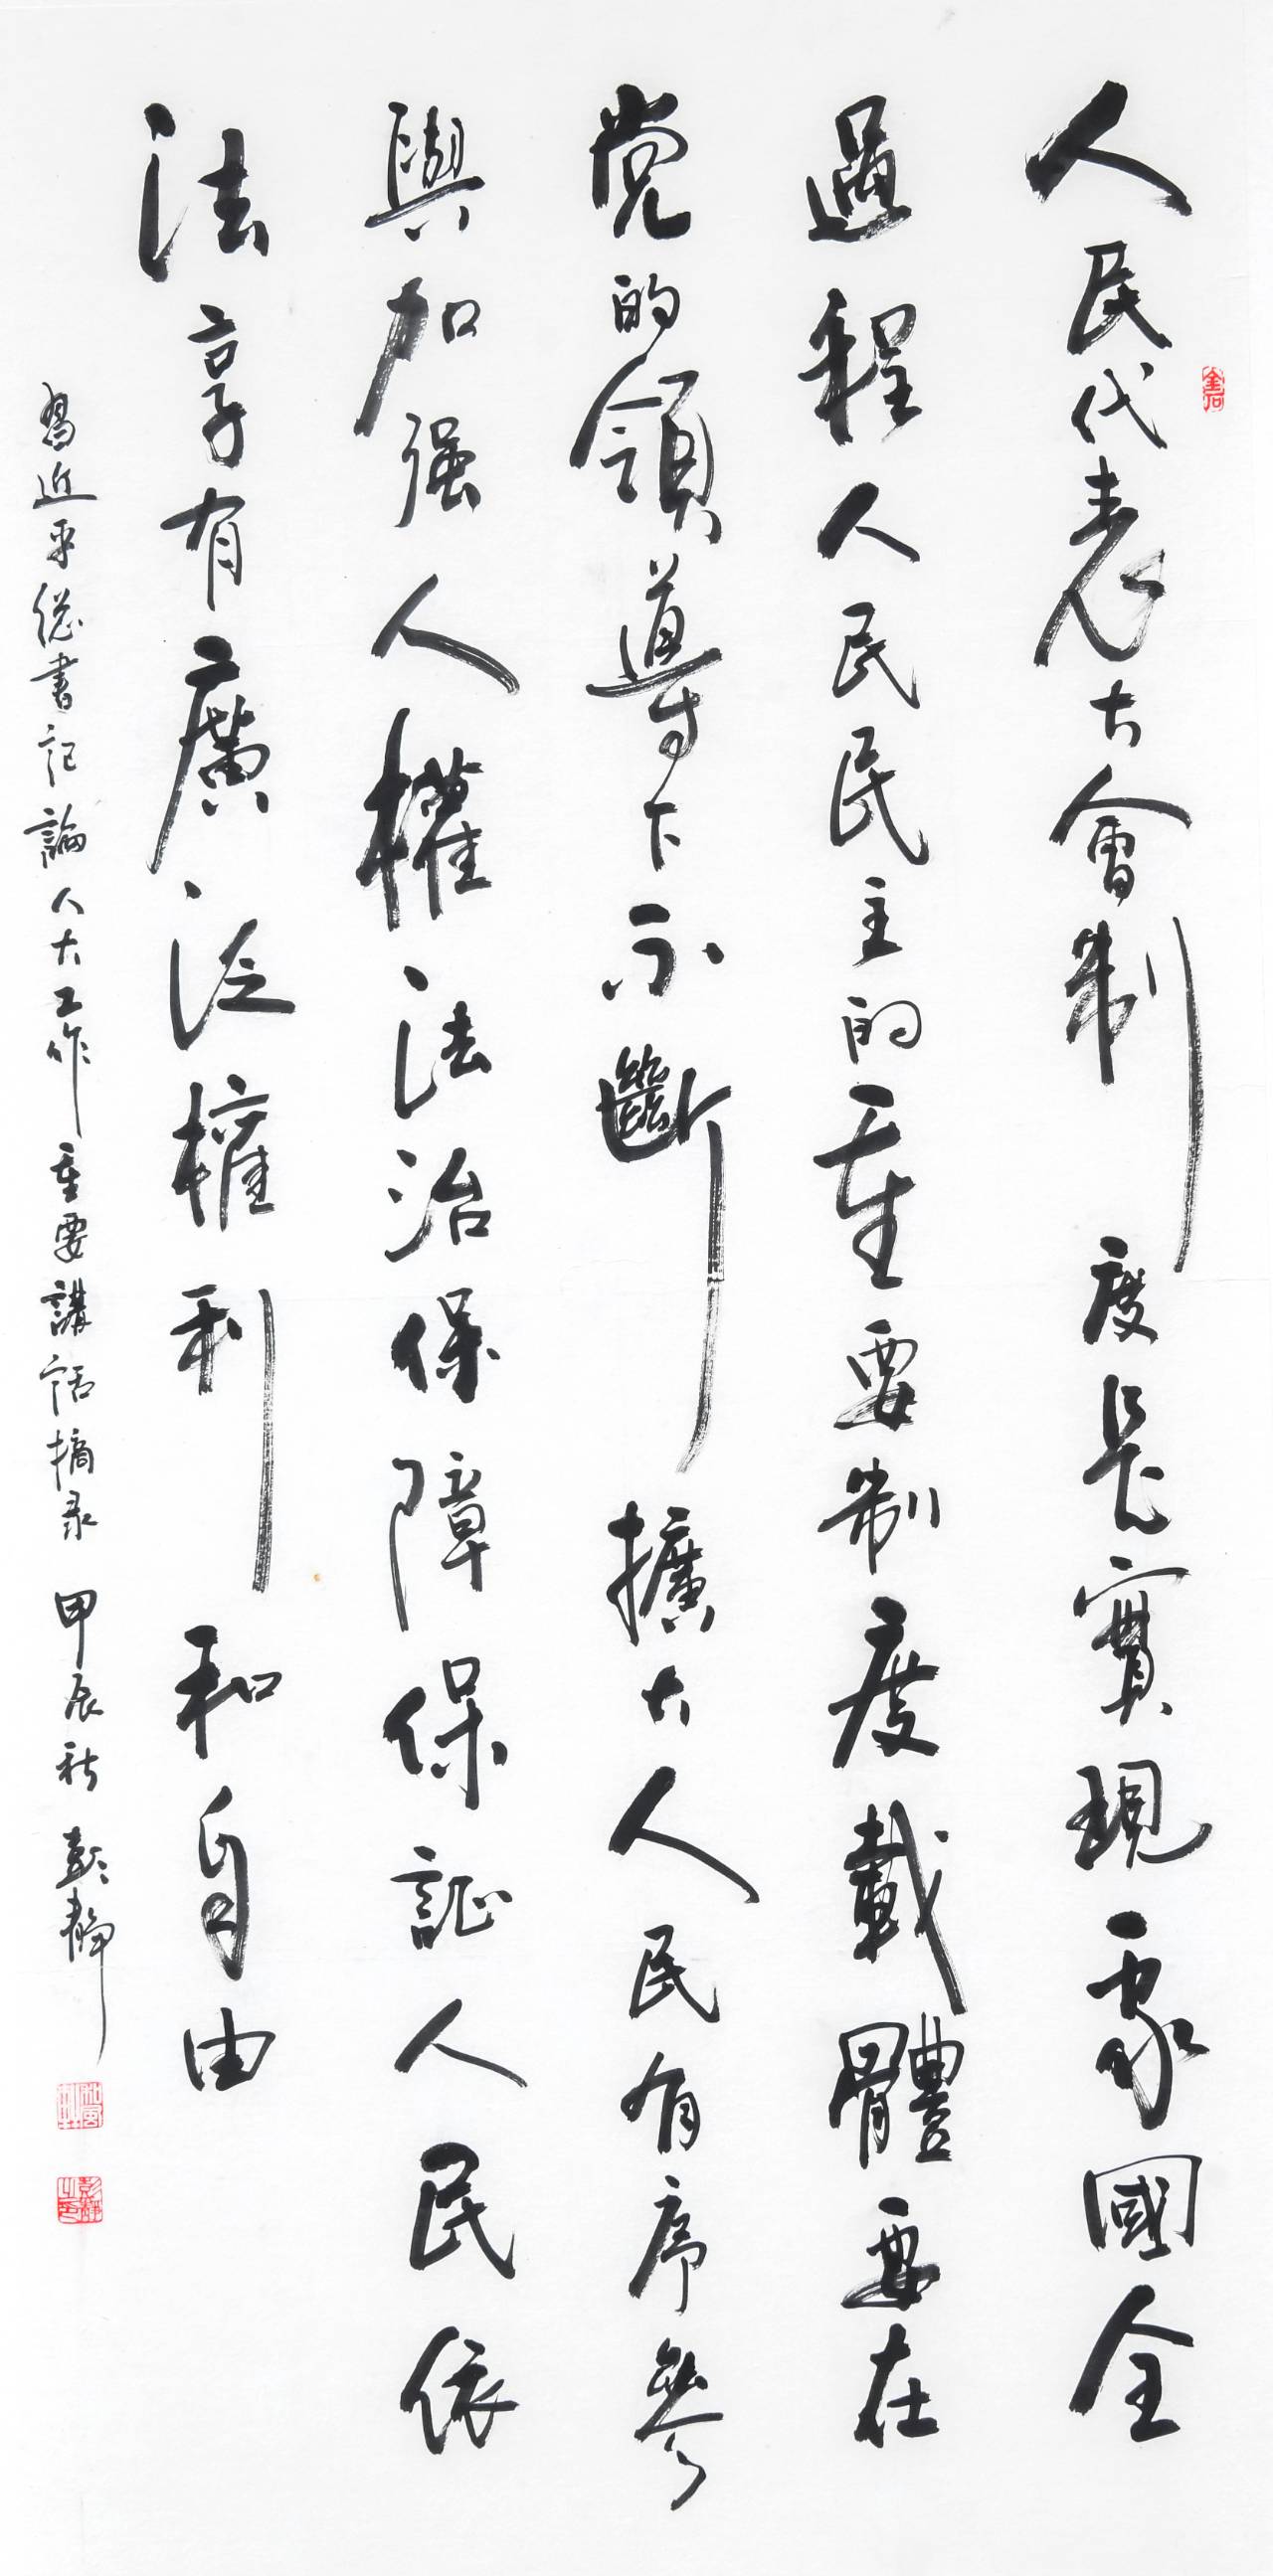 人民代表大會制度是實現家國全
過程人民民主的重要制度載體要在
党的領導下不斷擴大人民有序參
與加强人權法治保障保証人民依
法享有廣泛權利和自由
習近平總書記論人大工作重要講話摘录 甲辰秋 彭静
金石
彭靜之印